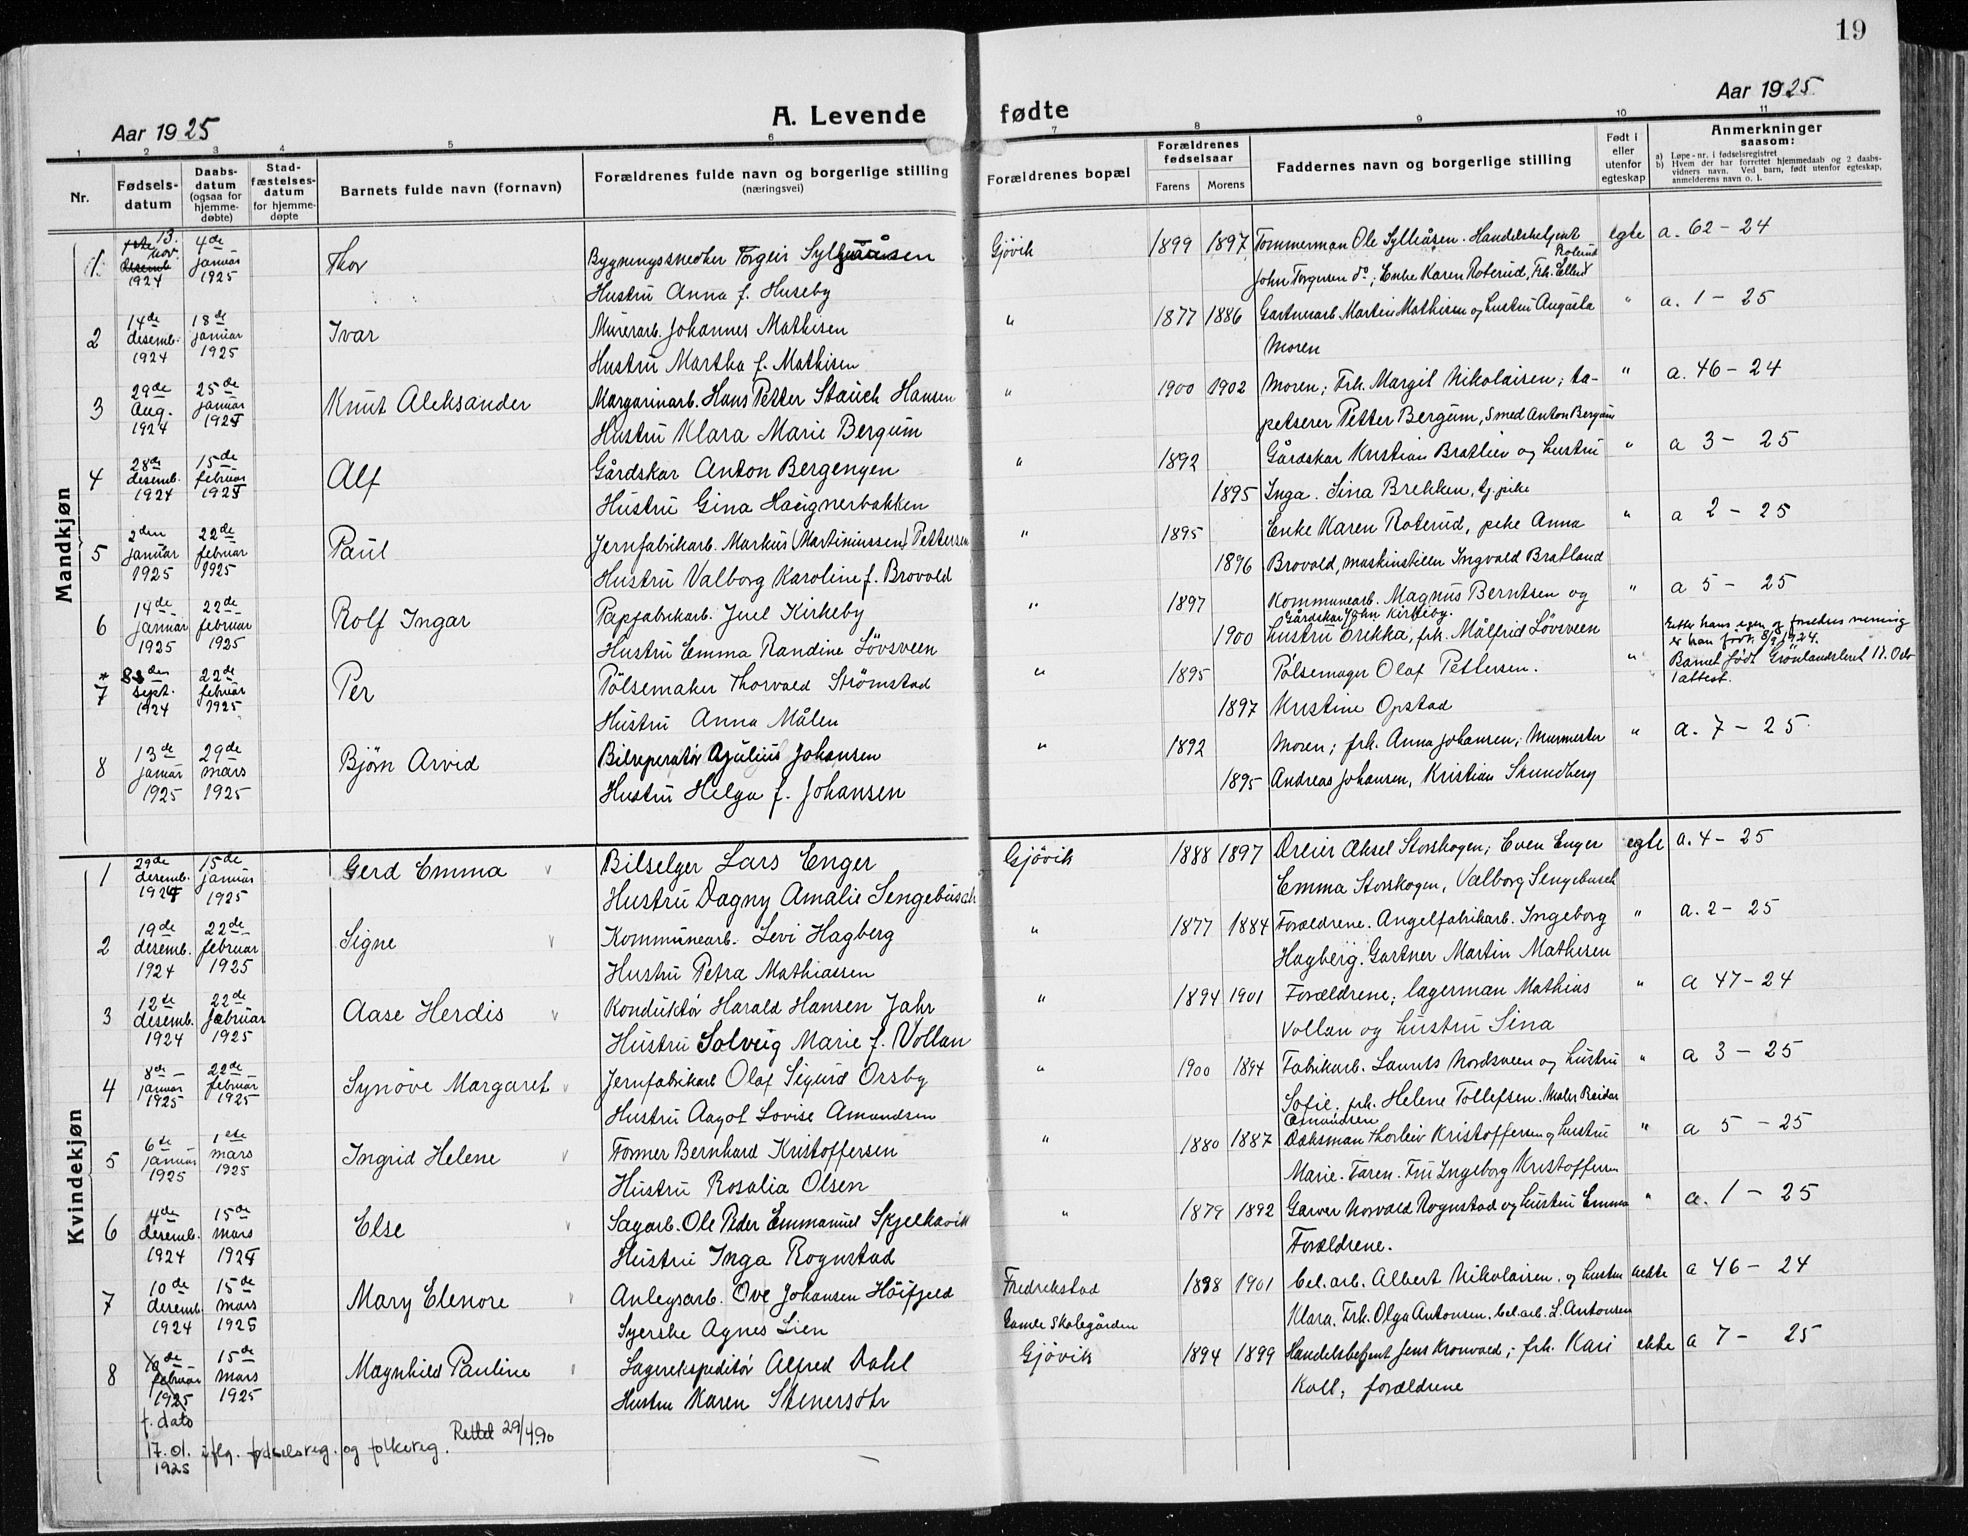 19
Aar 1925
A. Levende fødte
Aar 1925
1 2 3 4 5 6 7 8 9 10 11
Nr.
Fødsels-
datum
Daabs-
datum
(ogsaa for
hjemme-
døbte)
Stad-
fæstelses-
datum
for hjemme-
døpte
Barnets fulde navn (fornavn)
Forældrenes fulde navn og borgerlige stilling
(næringsvei)
Forældrenes bopæl
Forældrenes
fødselsaar
Farens Morens
Faddernes navn og borgerlige stilling
Født i
eller
utenfor
egteskap
Anmerkninger
saasom:
a) Løpe-nr. i fødselsregistret
b) Hvem der har forrettet hjemmedaab og 2 daabs-
vidners navn. Ved barn, født utenfor egteskap,
anmelderens navn o. l.
Mandkjøn
1 13. nov. 1924 4de januar 1925 Thor Bygningssnedker Torgeir Gjøvik 1899 1897 Tømmerman Ole Sylliåsen. Handelsbetjent egte a. 62-24
Hustru Anna f. Huseby John Torgersen do; Enke Karen Roterud, Frk. Ellen Roterud
2 14de desemb. 1924 18de januar 1925 Ivar Murerarb. Johannes Mathisen " 1877 1886 Gartnerarb. Martin Mathisen og hustru Augusta " a. 1-25
Hustru Martha f. Mathisen Moren
3 29de Aug. 1924 25de januar 1925 Knut Aleksander Margarinarb. Hans Petter Stauch Hansen " 1900 1902 Moren; Frk. Margit Nikolaisen; ta- " a. 46-24
Hustru Klara Marie Bergum petserer Petter Bergum, Smed Anton Bergum
4 28de desemb. 1924 15de februar 1925 Alf Gårdskar Anton Bergengen " 1892 Gårdskar Kristian Bratlien og hustru " a 3-25
Hustru Gina 1895 Inga. Sina Brekken, tj.pike
5 2den januar 1925 22de februar 1925 Paul Jernfabrikarb. Markus (Martiniussen) Pettersen " 1895 Enke Karen Roterud, pike Anna " a 2-25
Hustru Valborg Karoline f. Brovold 1896 Brovold, maskinstiller Ingvald Bratland
6 14de januar 1925 22de februar 1925 Rolf Ingar Papfabrikarb. Juel Kirkeby " 1897 Kommunearb. Magnus Berntsen og " a 5-25
Gårdskar John Kirkeby.
Hustru Emma Randine Lövsveen 1900 hustru Erikka, frk. Målfrid Lövsveen
Efter hans egen og foreldres mening
er han født 8/9 1924.
* 7 8de sept. 1924 22de februar 1925 Per Pølsemaker Thorvald Strømstad " 1895 Pølsemager Olaf Pettersen. " Barnet født Grönlandsleret 17. Oslo
1 attest.
Hustru Anna Målen 1897 Kristine Opstad
8 13de januar 1925 29de mars 1925 Bjørn Arvid Bilreperatør Julius Johansen " 1892 Moren; frk. Anna Johansen; Murmester " a. 7-25
Hustru Helga f. Johansen 1895 Andreas Johansen, Kristian Skundberg
Kvindekjøn
1 29de desemb. 1924 15de januar 1925 Gerd Emma Bilselger Lars Enger Gjövik 1888 1897 Dreier Aksel Storskogen; Even Enger egte a. 4-25
Hustru Dagny Amalie Sengebusch Emma Storskogen, Valborg Sengebusch
2 19de desemb. 1924 22de februar 1925 Signe Kommunearb. Levi Hagberg " 1877 1884 Forældrene. Angelfabrikarb. Ingeborg " a. 2-25
Hustru Petra Mathiassen Hagberg. Gartner Martin Mathisen
3 12de desemb. 1924 22de februar 1925 Aase Herdis Konduktør Harald Hansen Jahr " 1894 1901 Forældrene; lagerman Mathias " a 47-24
Hustru Solveig Marie f. Vollan Vollan og hustru Sina
4 8de januar 1925 22de februar 1925 Synöve Margaret Jernfabrikarb Olaf Sigurd Orsby " 1900 1894 Fabrikarb. Laurits Nordsveen og hustru " a 3-25
Hustru Aagot Lovise Amundsen Sofie. frk. Helene Tollefsen. Maler Reidar
Amundsen
5 6te januar 1925 1ste mars 1925 Ingrid Helene Former Bernhard Kristoffersen " 1880 1887 Dæksman Thorleiv Kristoffersen og hustru " a 5-25
Hustru Rosalia Olsen Marie. Faren. Fru Ingeborg Kristoffersen
6 4de desemb. 1924 15de mars 1925 Else Sagarb. Ole Peder Emmanuel Skjelkavik " 1879 1892 Garver Norvald Rognstad og hustru Emma " a. 1-25
Hustru Inga Rognstad Forældrene.
7 10de desemb. 1924 15de mars 1925 Mary Elenore Anlegsarb. Ove Johansen Höifjeld Fredrikstad 1898 1901 bel.arb. Albert Nikolaisen. og hustru uekte a 46-24
Syerske Agnes Lien Gamle Skolegården Klara. Frk. Olga Antonsen. bel.arb. L. Antonsen
8 februar 1925 15de mars 1925 Magnhild Pauline Lagerekspeditør Alfred Dahl Gjövik 1894 1899 Handelsbetjent Jens Kronvold; frk. Kari ekte a 7-25
Hustru Karen Stenersöhr Koll; forældrene
f. dato
17.01. 1925 iflg. fødselsreg. og folkereg. Rettet 29/4.90